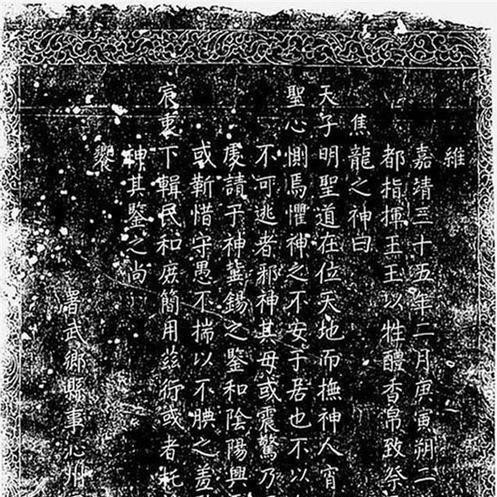 維
嘉靖三十五年二月庚寅朔二
都指揮王王以牲醴香帛致祭
焦龍之神曰
天子明聖道在位天地而撫神人宵
聖心惻焉懼神之不安于居也不以
不可逃者邪神其毋或震驚乃
虔請于神冀錫之鑒和陰陽興
或靳惜守愚不揣以不腆之羞
宸衷下輯民和庶簡用茲行或者
神其鑒之尚
饗
署武鄉縣事沁州